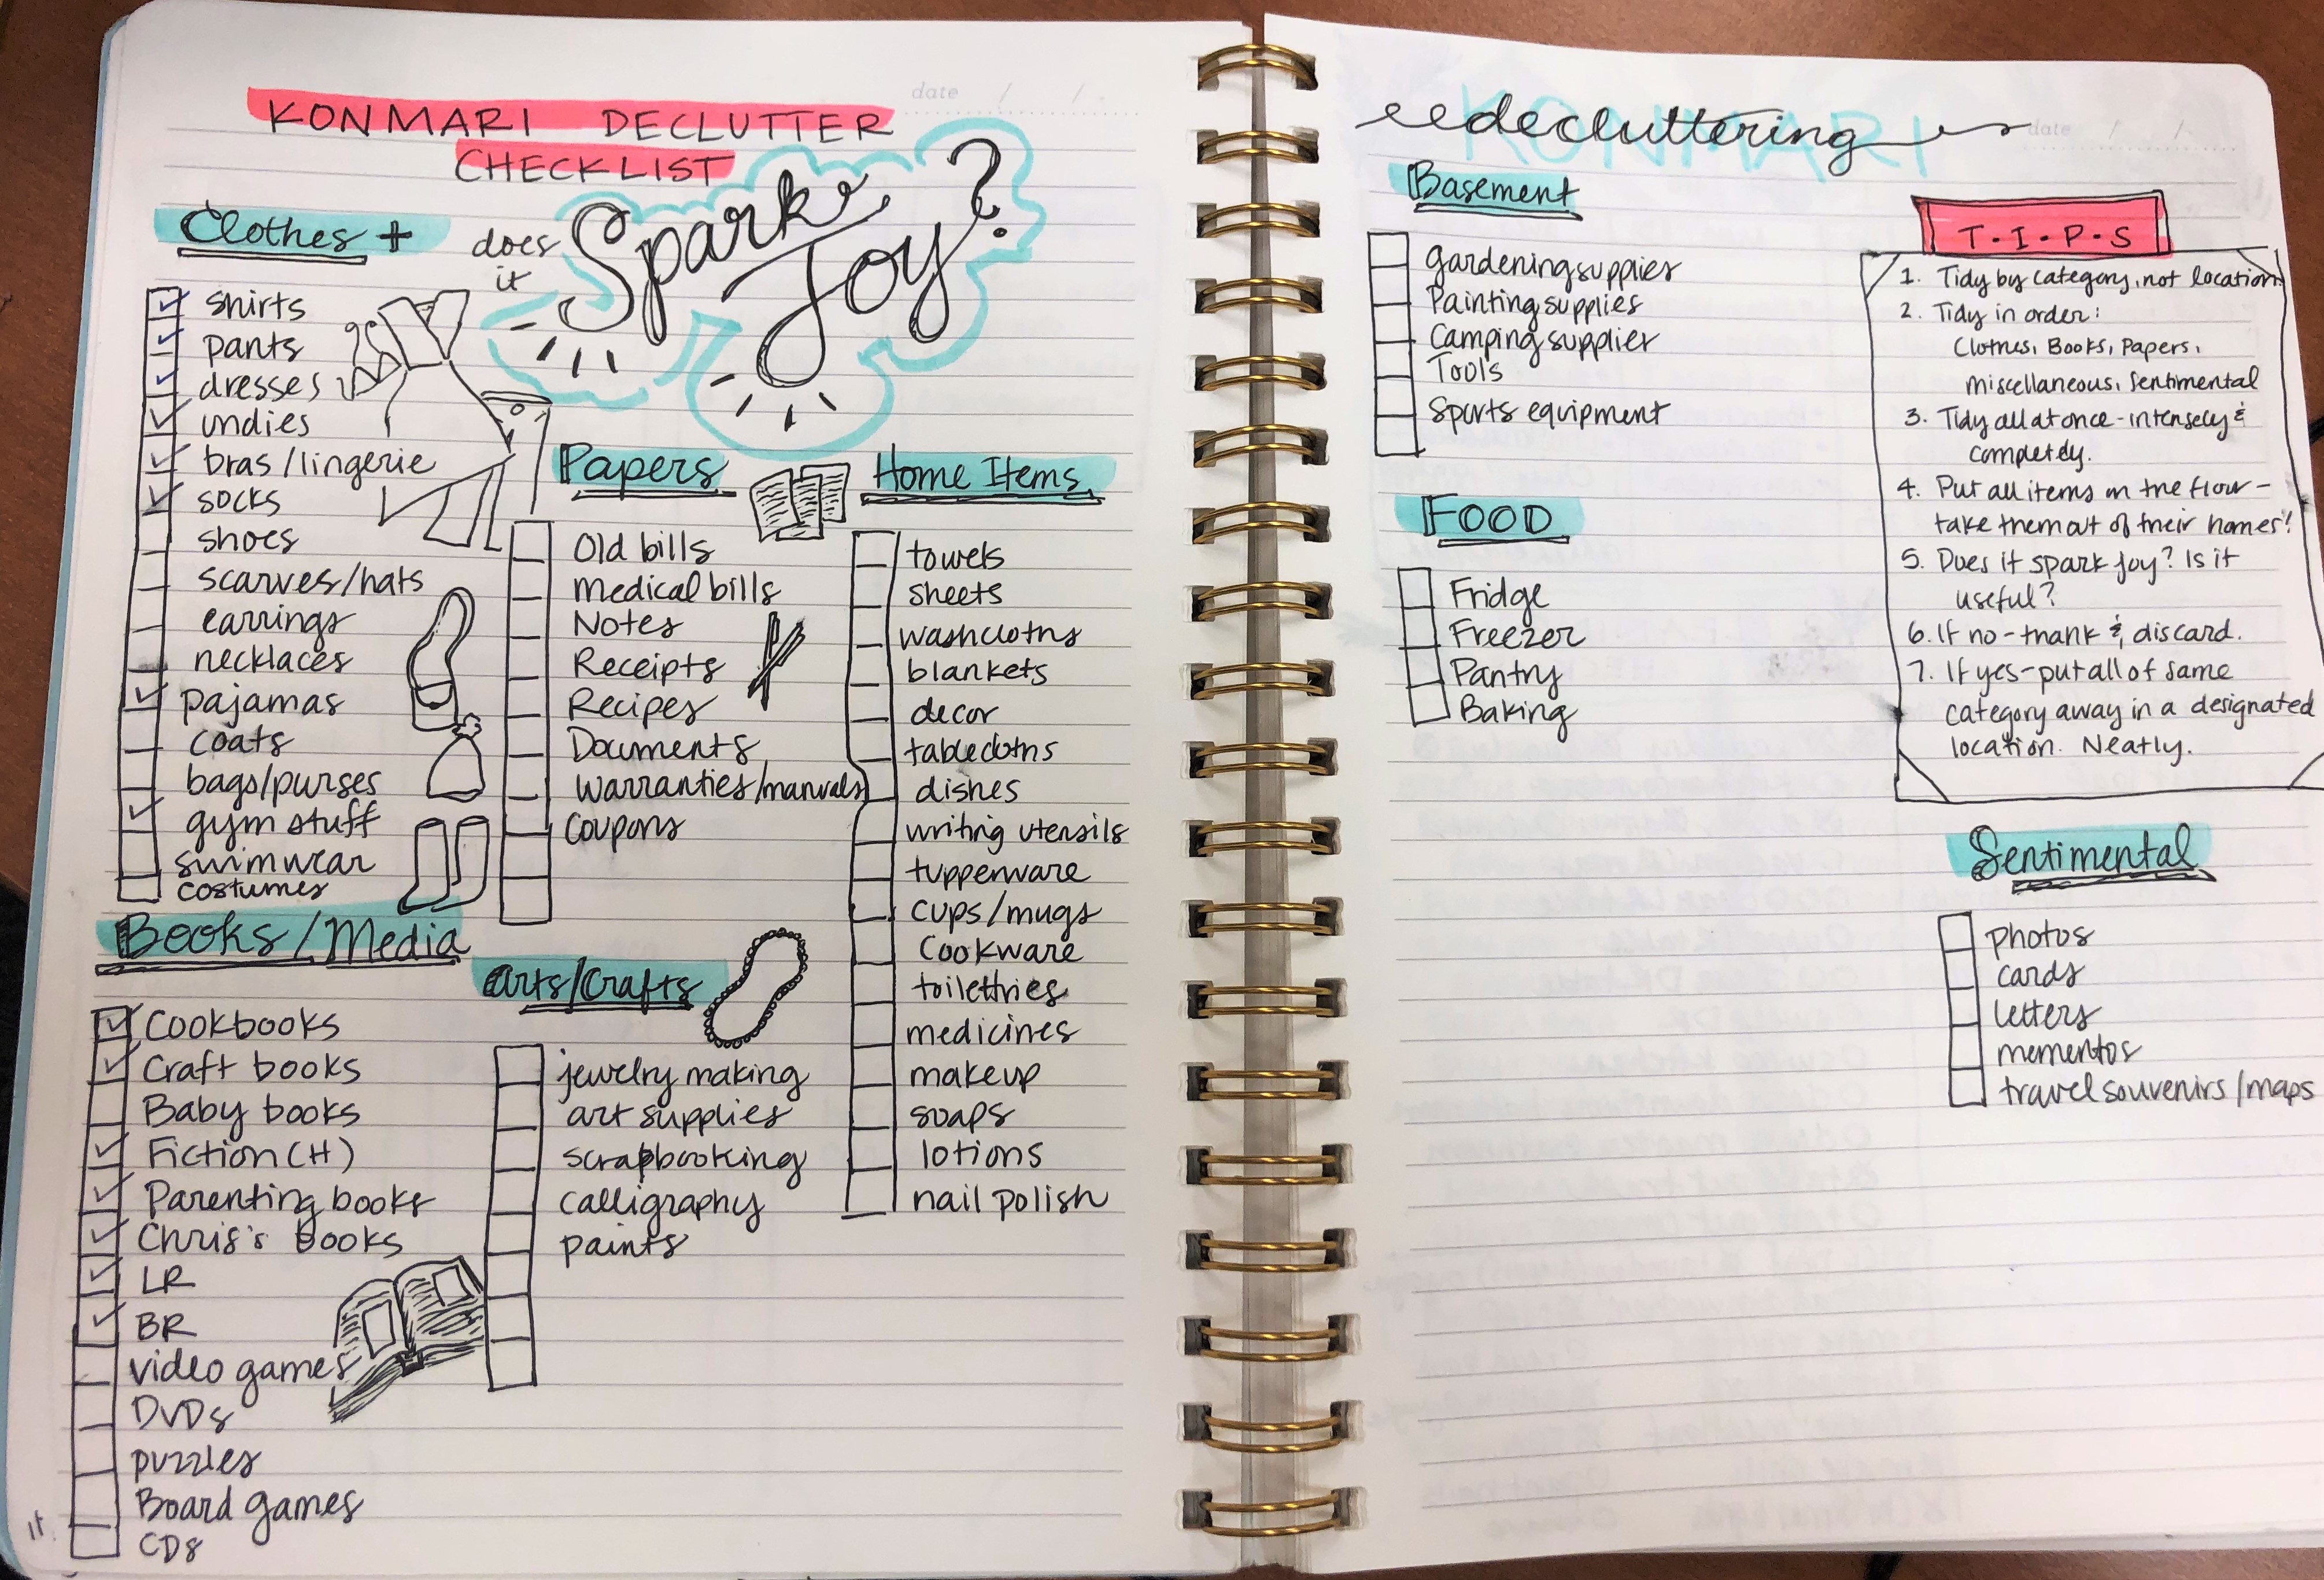 date / / .
KONMARI DECLUTTER
CHECKLIST
does
it
Spark
Joy?
Clothes +
shirts
pants
dresses
undies
bras/lingerie
socks
shoes
scarves/hats
earrings
necklaces
pajamas
coats
bags/purses
gym stuff
swimwear
costumes
Books/Media
Cookbooks
Craft books
Baby books
Fiction (H)
Parenting books
Chris's books
LR
BR
video games
DVDs
puzzles
Board games
CDs
Papers
Old bills
Medical bills
Notes
Receipts
Recipes
Documents
Warranties/manuals
Coupons
Arts/Crafts
jewelry making
art supplies
scrapbooking
calligraphy
paints
Home Items
towels
sheets
washcloths
blankets
decor
tablecloths
dishes
writing utensils
tupperware
cups/mugs
Cookware
toilettries
medicines
makeup
soaps
lotions
nail polish
KONMARI
decluttering
date / /
Basement
gardening supplies
Painting supplies
Camping supplies
Tools
Sports equipment
FOOD
Fridge
Freezer
Pantry
Baking
T.I.P.S
1. Tidy by category, not location.
2. Tidy in order:
Clothes, Books, Papers,
miscellaneous, Sentimental
3. Tidy all at once - intensely &
completely.
4. Put all items on the floor -
take them out of their homes!
5. Does it spark joy? Is it
useful?
6. If no - thank & discard.
7. If yes - put all of same
category away in a designated
location. Neatly.
Sentimental
photos
cards
letters
mementos
travel souvenirs/maps